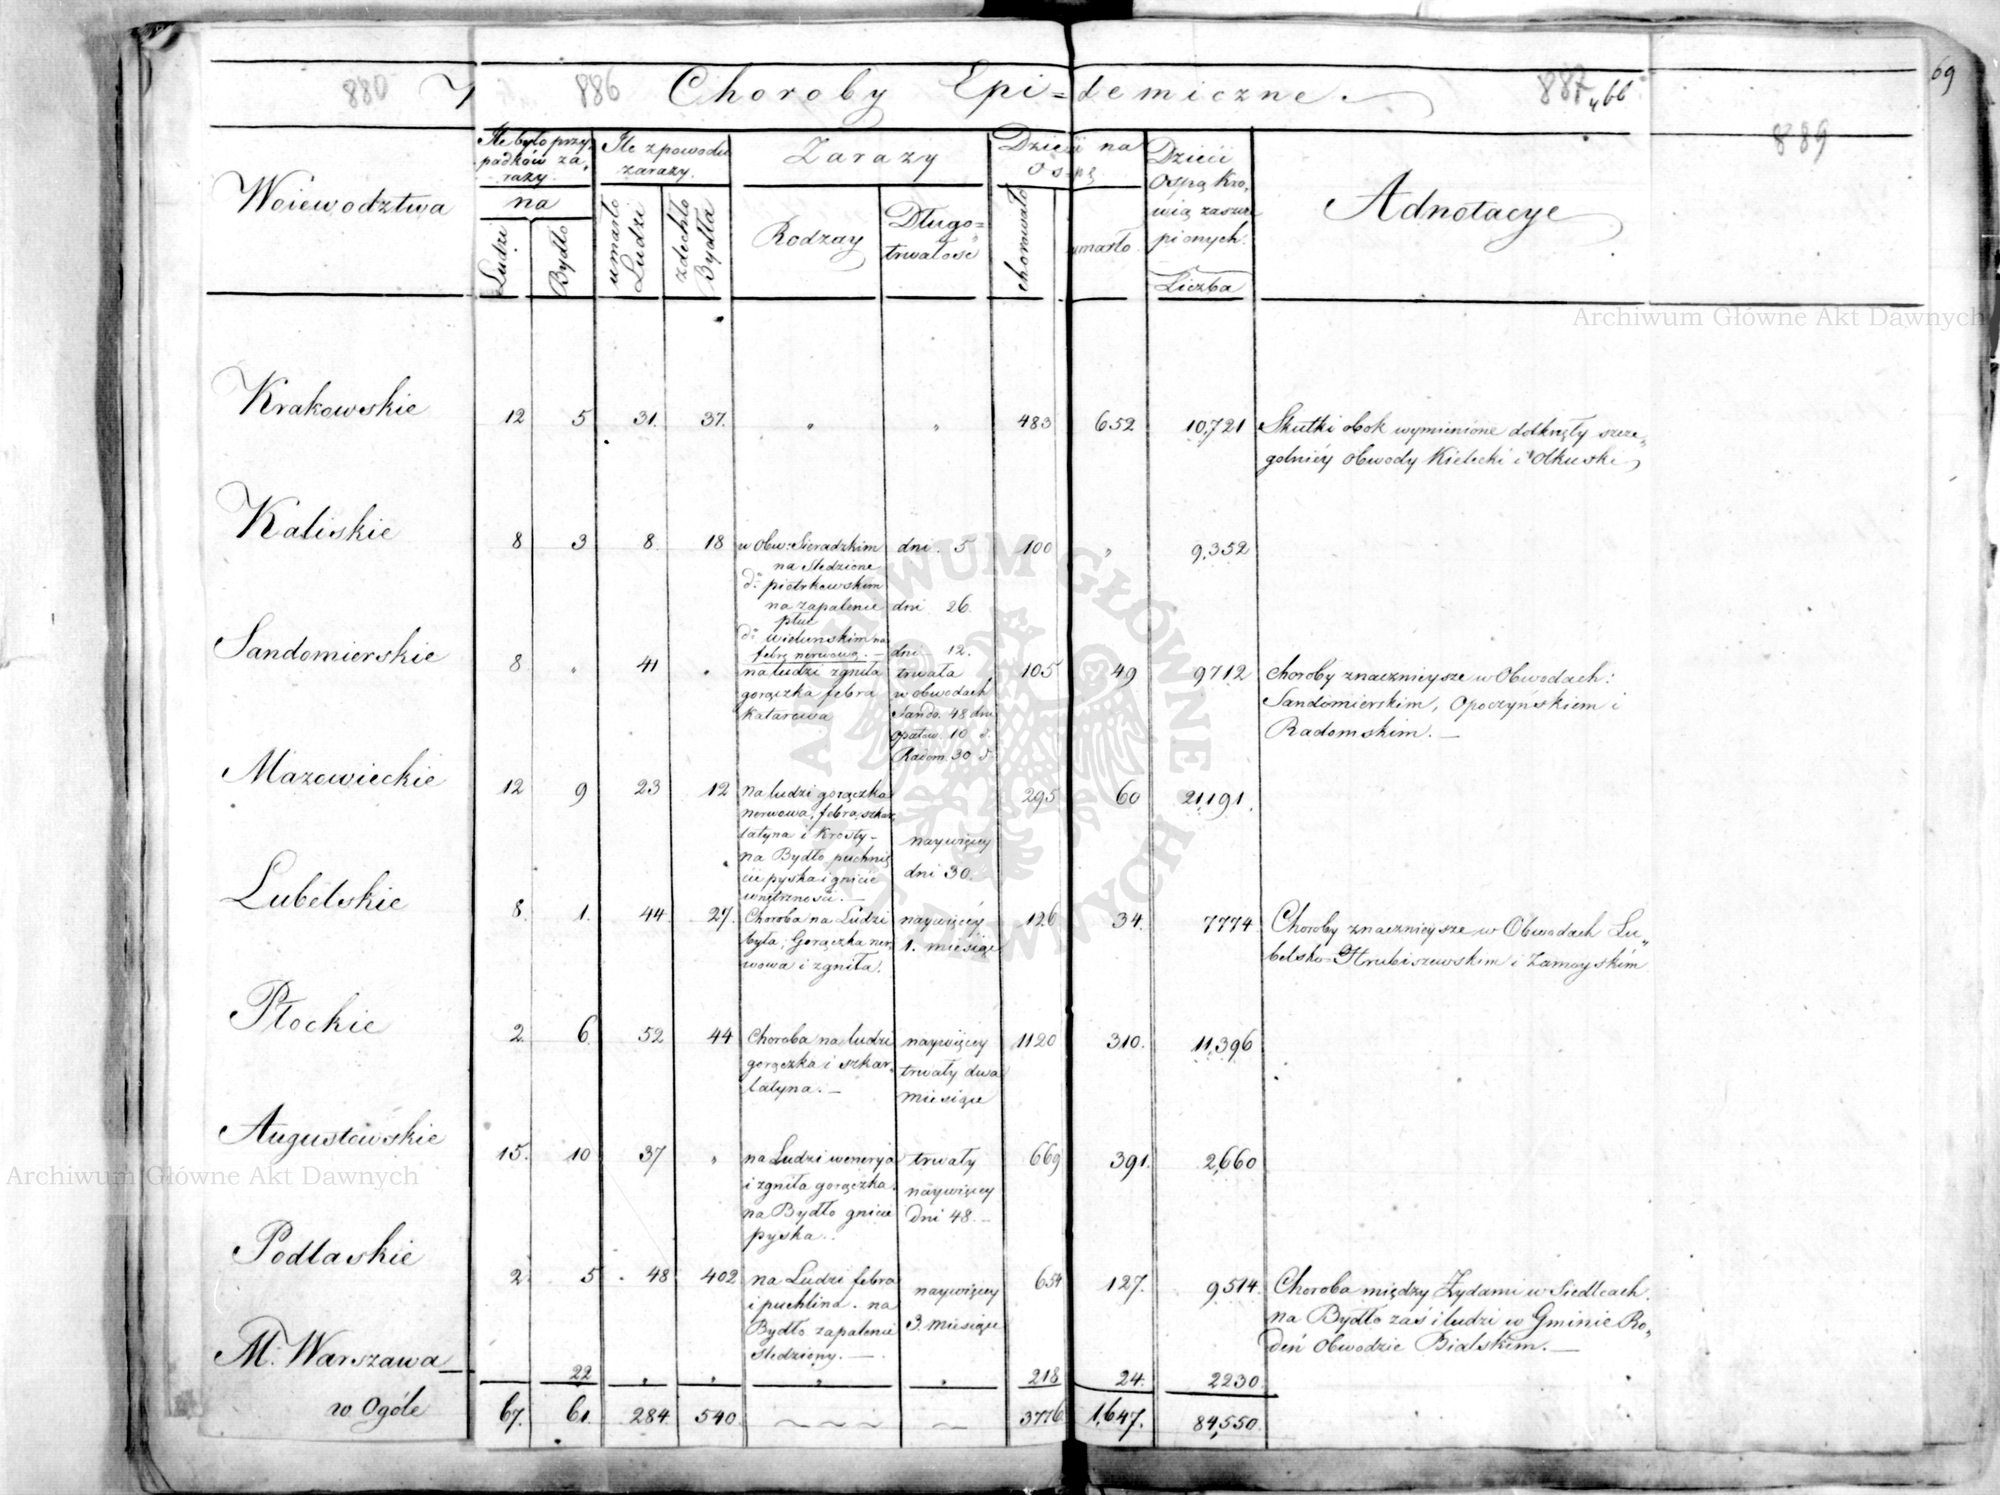 880 886 Choroby Epi=demiczne. 887 66 69
889
Woiewodztwa
Ile było przy,
padków za,
razy.
na
Ludzi
Bydło
Ile z powodu
zarazy.
umarło
Ludzi
zdechło
Bydła
Zarazy
Rodzay
Długo=
trwałość
Dzieci na
Ospę
chorowało
umarło.
Dzieci
Ospą Kro,
wią zaszcze
pionych.
Liczba
Adnotacye
Krakowskie 12 5 31. 37. " " 483 652 10,721 Skutki obok wymienione dotknęły szcze,
golniéy obwody Kielecki i Olkuski
Kaliskie 8 3 8. 18 w Obw: Sieradzkim dni. 5 100 " 9,352
na śledzione
do piotrkowskim
na zapalenie dni 26.
płuc
do wieluńskim na
febrę nerwową. — dni — 12.
Sandomierskie 8 " 41 " na ludzi zgniła trwała 105 49 9712 choroby znacznieysze w Obwodach:
gorączka febra w obwodach Sandomierskim, Opoczyńskiem i
Katarowa Sando. 48 dni Radomskim. —
opatow. 10 d.
Radom. 30 d
Mazowieckie 12 9 23 12 na ludzi gorączka 295 60 21,191.
nerwowa, febra, szkar,
latyna i Krosty — naywięcey
na Bydło puchnię
cie pyska i gnicie dni 30.
wnętrzności. —
Lubelskie 8. 1. 44 27. Choroba na Ludzi naywięcéy 126 34. 7774 Choroby znacznieysze w Obwodach Lu,
była; Gorączka ner, 1. miesiąc belsko=Hrubiszewskim i Zamoyskim
wowa i zgniła.
Płockie 2 6. 52 44 Choroba na ludzi naywięcey 1120 310. 11,396
gorączka i szkar, trwały dwa
latyna. — miesiące
Augustowskie 15. 10 37 " na Ludzi wenerya trwały 669 391. 2,660
i zgniła gorączka. naywięcey
na Bydło gnicie dni 48. —
pyska.
Podlaskie 2 5 48 402 na Ludzi febra naywięcey 654 127. 9514. Choroba między Żydami w Siedlcach.
i puchlina. na 3. miesiące na Bydło zaś i ludzi w Gminie Ro,
Bydło zapalenie deń Obwodzie Bialskim. —
śledziony. —
M. Warszawa 22 " " " " 218 24. 2230
w Ogóle 67. 61. 284. 540. 3776 1,647. 84,550.
Archiwum Główne Akt Dawnych
Archiwum Główne Akt Dawnych
ARCHIWUM GŁÓWNE AKT DAWNYCH